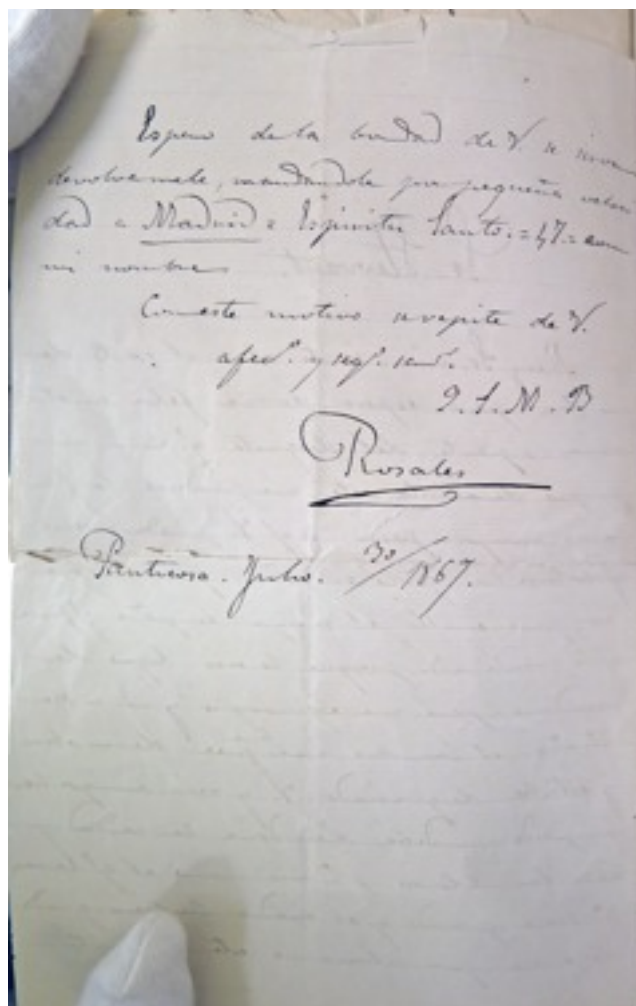 Espero de la bondad de V. se sirva
devolvermele, mandandole por pequeña veloci
dad a Madrid = Espiritu Santo. = 47. = con
mi nombre
Con este motivo se repite de V.
afecº. y segº. serv.
Q. S. M. B
Rosales
Panticosa. Julio. 30/1867.